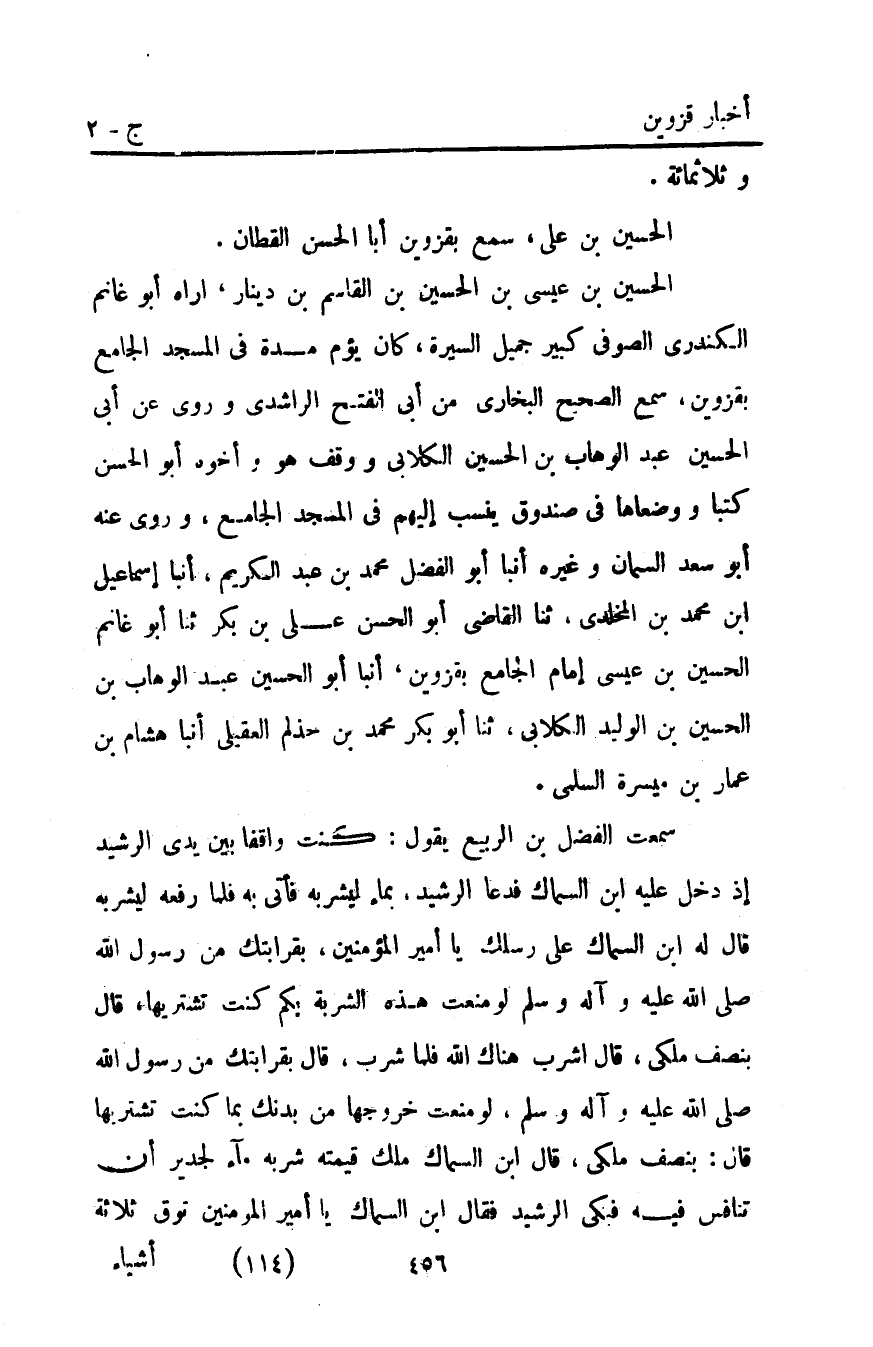 أخبار قزوين ج - ٢
و ثلاثمائة .
الحسين بن على، سمع بقزوين أبا الحسن القطان .
الحسين بن عيسى بن الحسين بن القاسم بن دينار ، اراه أبو غانم
الكندرى الصوفى كبير جميل السيرة، كان يؤم مدة فى المسجد الجامع
بقزوين، سمع الصحيح البخارى من أبى الفتح الراشدى و روى عن أبى
الحسين عبد الوهاب بن الحسين الكلابى و وقف هو و أخوه أبو الحسن
كتبا و وضعاها فى صندوق ينسب إليهم فى المسجد الجامع ، و روى عنه
أبو سعد السمان و غيره أنبا أبو الفضل محمد بن عبد الكريم ، أنبا إسماعيل
ابن محمد بن المخلدى ، ثنا القاضى أبو الحسن على بن بكر ثنا أبو غانم
الحسين بن عيسى إمام الجامع بقزوين ، أنبا أبو الحسين عبد الوهاب بن
الحسين بن الوليد الكلابى ، ثنا أبو بكر محمد بن حذلم العقيلى أنبا هشام بن
عمار بن ميسرة السلمى .
سمعت الفضل بن الربيع يقول : كنت واقفا بين يدى الرشيد
إذ دخل عليه ابن السماك فدعا الرشيد ، بماء ليشربه فآتى به فلما رفعه ليشربه
قال له ابن السماك على رسلك يا أمير المؤمنين ، بقرابتك من رسول الله
صلى الله عليه و آله و سلم لو منعت هذه الشربة بكم كنت تشتريها، قال
بنصف ملكى ، قال اشرب هناك الله فلما شرب ، قال بقرابتك من رسول الله
صلى الله عليه و آله و سلم ، لو منعت خروجها من بدنك بما كنت تشتريها
قال : بنصف ملكى ، قال ابن السماك ملك قيمته شربه مآء لجدير أن
تنافس فيه فبكى الرشيد فقال ابن السماك يا أمير المومنين توق ثلاثة
٤٥٦ (١١٤) أشياء